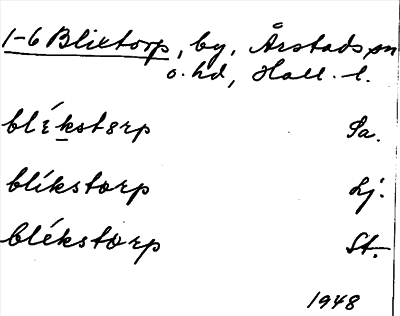 1-6 Blixtorp, by, Årstads sn
o. hd, Hall. l.
blɛ́kstɵrp Sa.
blíkstɵrp Lj.
blékstɵrp St.
1948